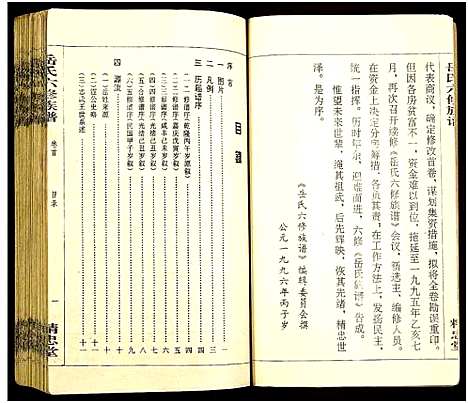 岳氏六修族谱
代表商议，确定修改首卷，谋划集资措施，拟将全卷勘误重印。
但因各房贫富不一，资金难以到位，拖延至一九九五年乙亥七
月，再次召开续修《岳氏六修族谱》会议，新选主、编修人员。
在资金上决定分字筹措，各负其责，在工作方法上，发扬民主，
统一指挥。历时年余，迎难而进，六修《岳氏族谱》告成。
惟望未来世辈，绳其祖武，后先辉映，恢其先绪，精忠世
泽。是为序。
《岳氏六修族谱》编辑委员会撰
公元一九九六年丙子岁
精忠堂
目录
序言
一 图片 一
二 凡例 三
三 历届谱序 四
(一)一修谱序
(二)二修谱序
(四)四修谱序
(五)五修谱序
四 源流
(一)岳姓来源
(二)岳公史略
岳氏六修族谱
卷首
目录
一
精忠堂